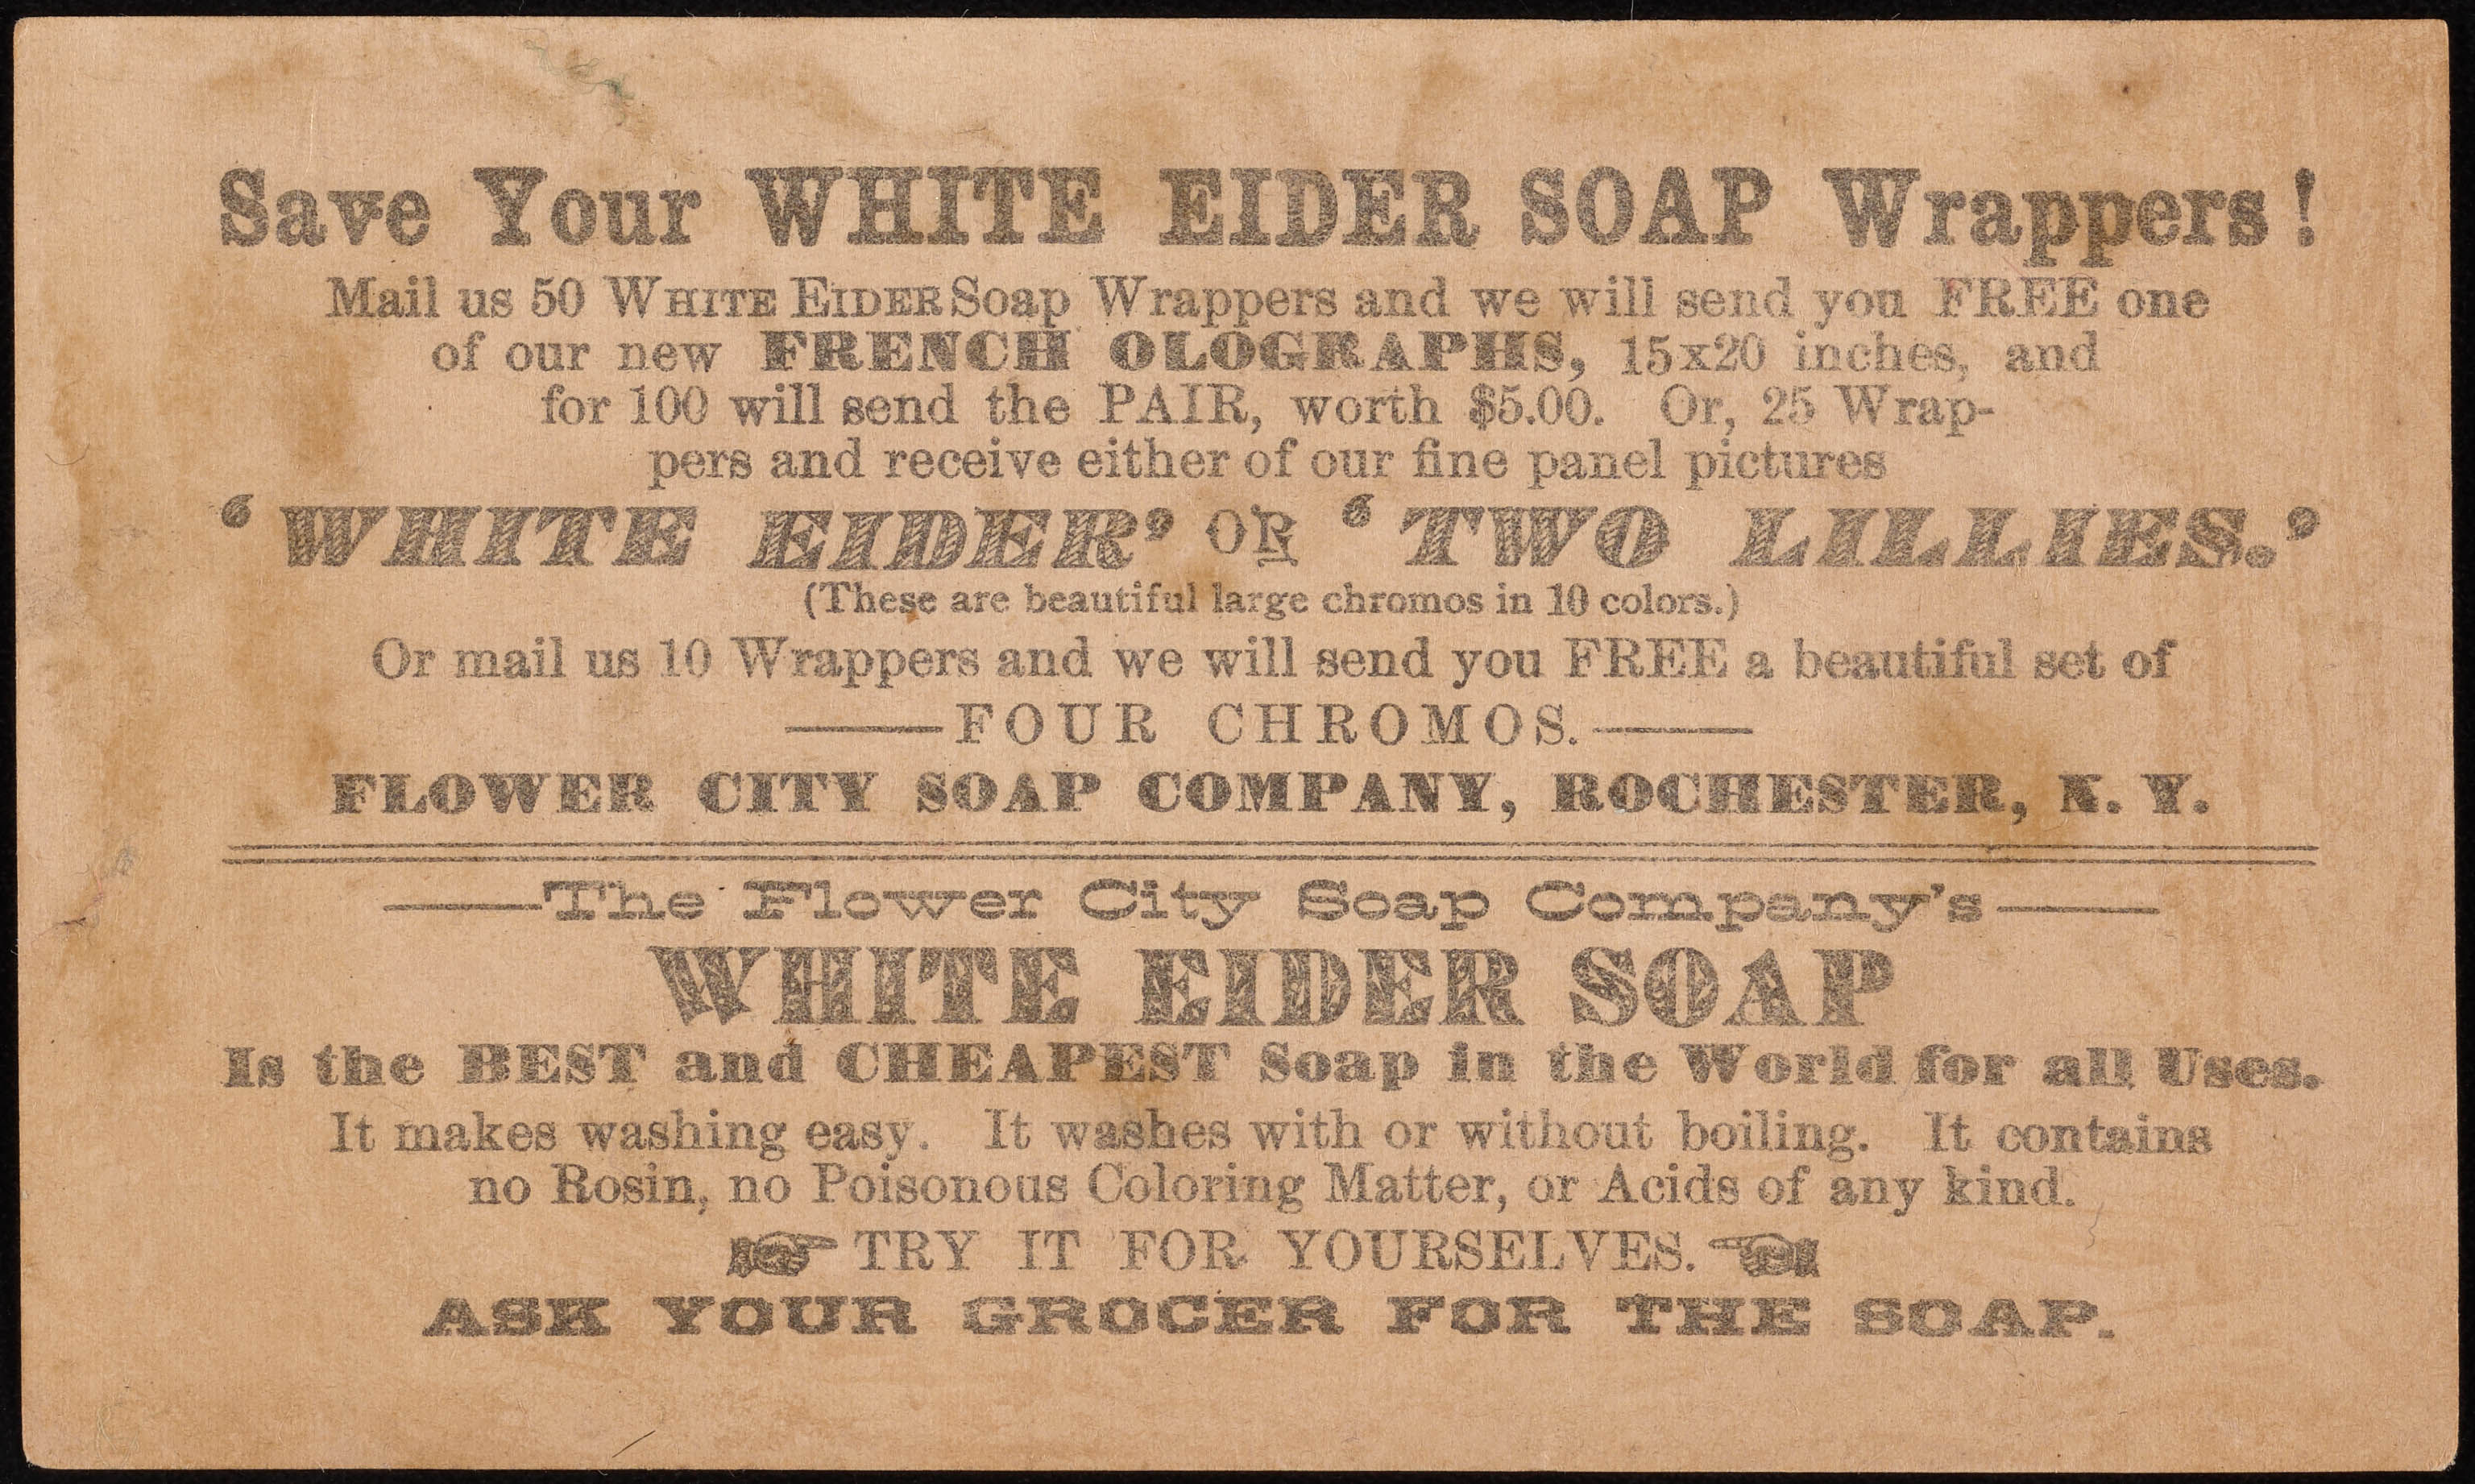 Save Your WHITE EIDER SOAP Wrappers!
Mail us 50 WHITE EIDER Soap Wrappers and we will send you FREE one
of our new FRENCH OLOGRAPHS, 15x20 inches, and
for 100 will send the PAIR, worth $5.00. Or, 25 Wrap-
pers and receive either of our fine panel pictures
'WHITE EIDER' OR 'TWO LILLIES.'
(These are beautiful large chromos in 10 colors.)
Or mail us 10 Wrappers and we will send you FREE a beautiful set of
——FOUR CHROMOS.——
FLOWER CITY SOAP COMPANY, ROCHESTER, N. Y.
——The Flower City Soap Company's——
WHITE EIDER SOAP
Is the BEST and CHEAPEST Soap in the World for all Uses.
It makes washing easy. It washes with or without boiling. It contains
no Rosin, no Poisonous Coloring Matter, or Acids of any kind.
☞ TRY IT FOR YOURSELVES. ☜
ASK YOUR GROCER FOR THE SOAP.